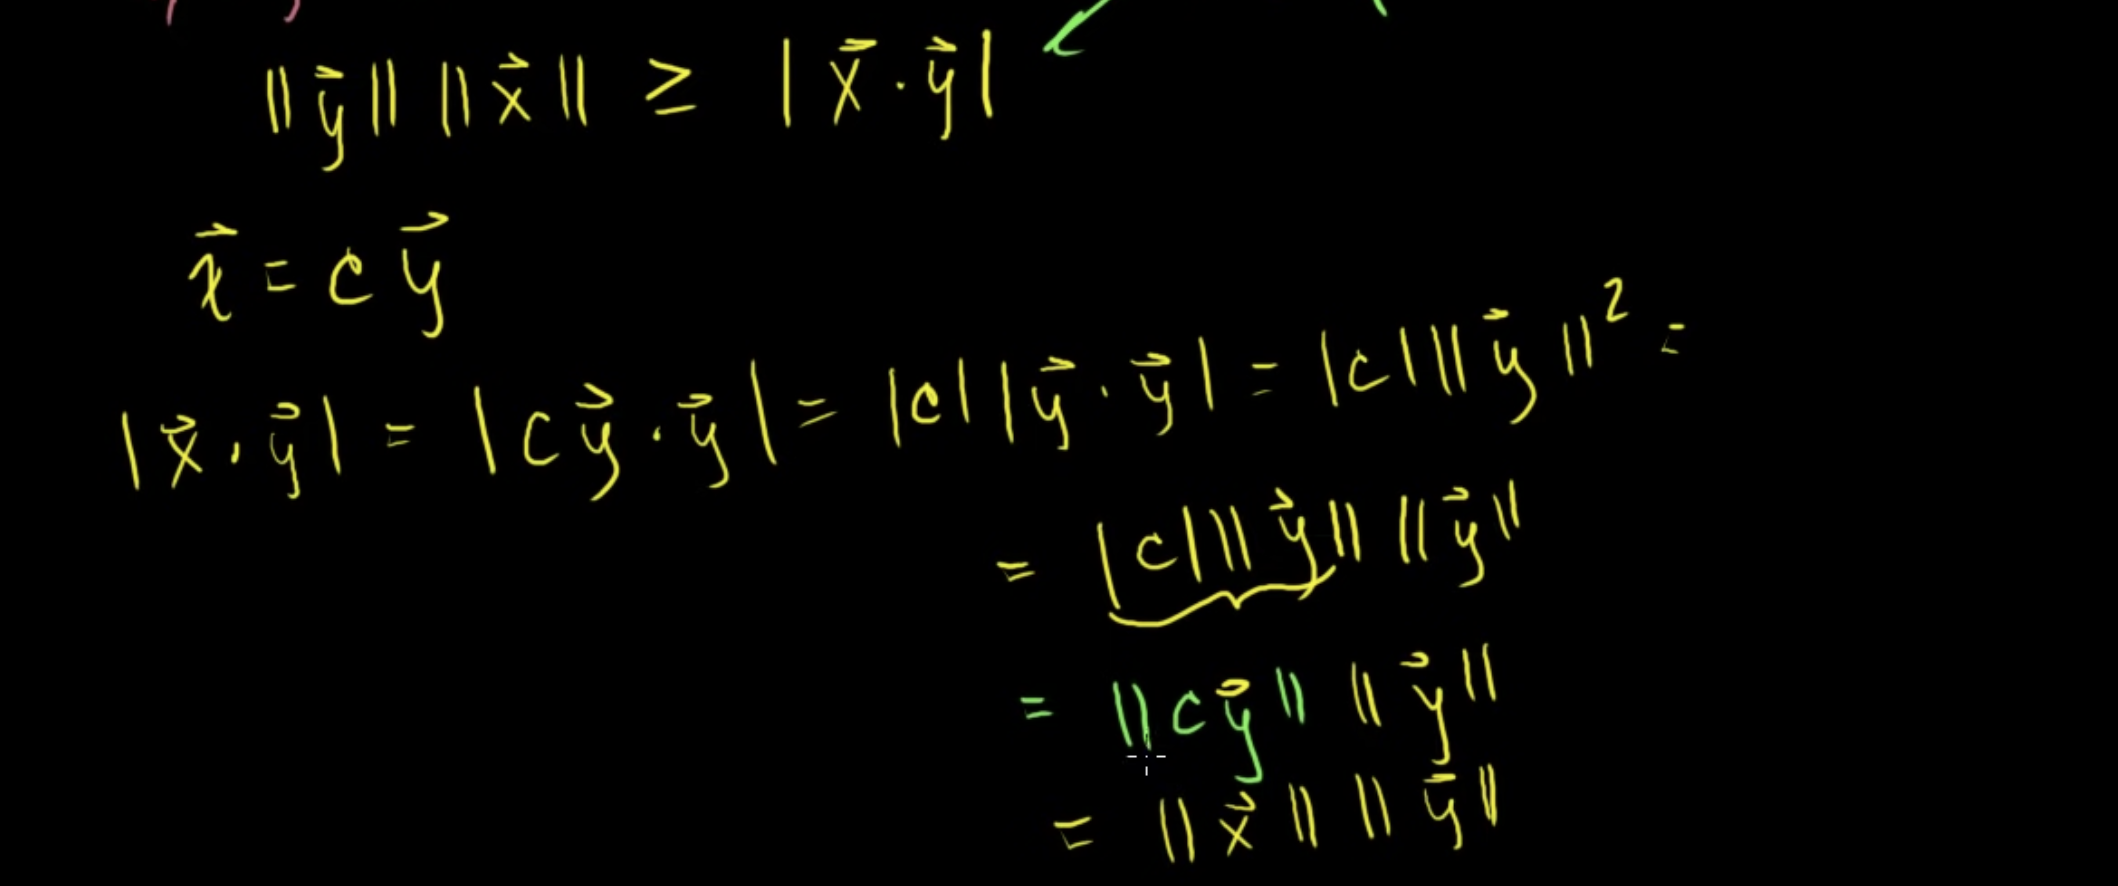 ‖y⃗‖ ‖x⃗‖ ≥ |x⃗ · y⃗|
x⃗ = c y⃗
|x⃗ · y⃗| = |c y⃗ · y⃗| = |c| |y⃗ · y⃗| = |c| ‖y⃗‖² =
= |c| ‖y⃗‖ ‖y⃗‖
= ‖c y⃗‖ ‖y⃗‖
= ‖x⃗‖ ‖y⃗‖